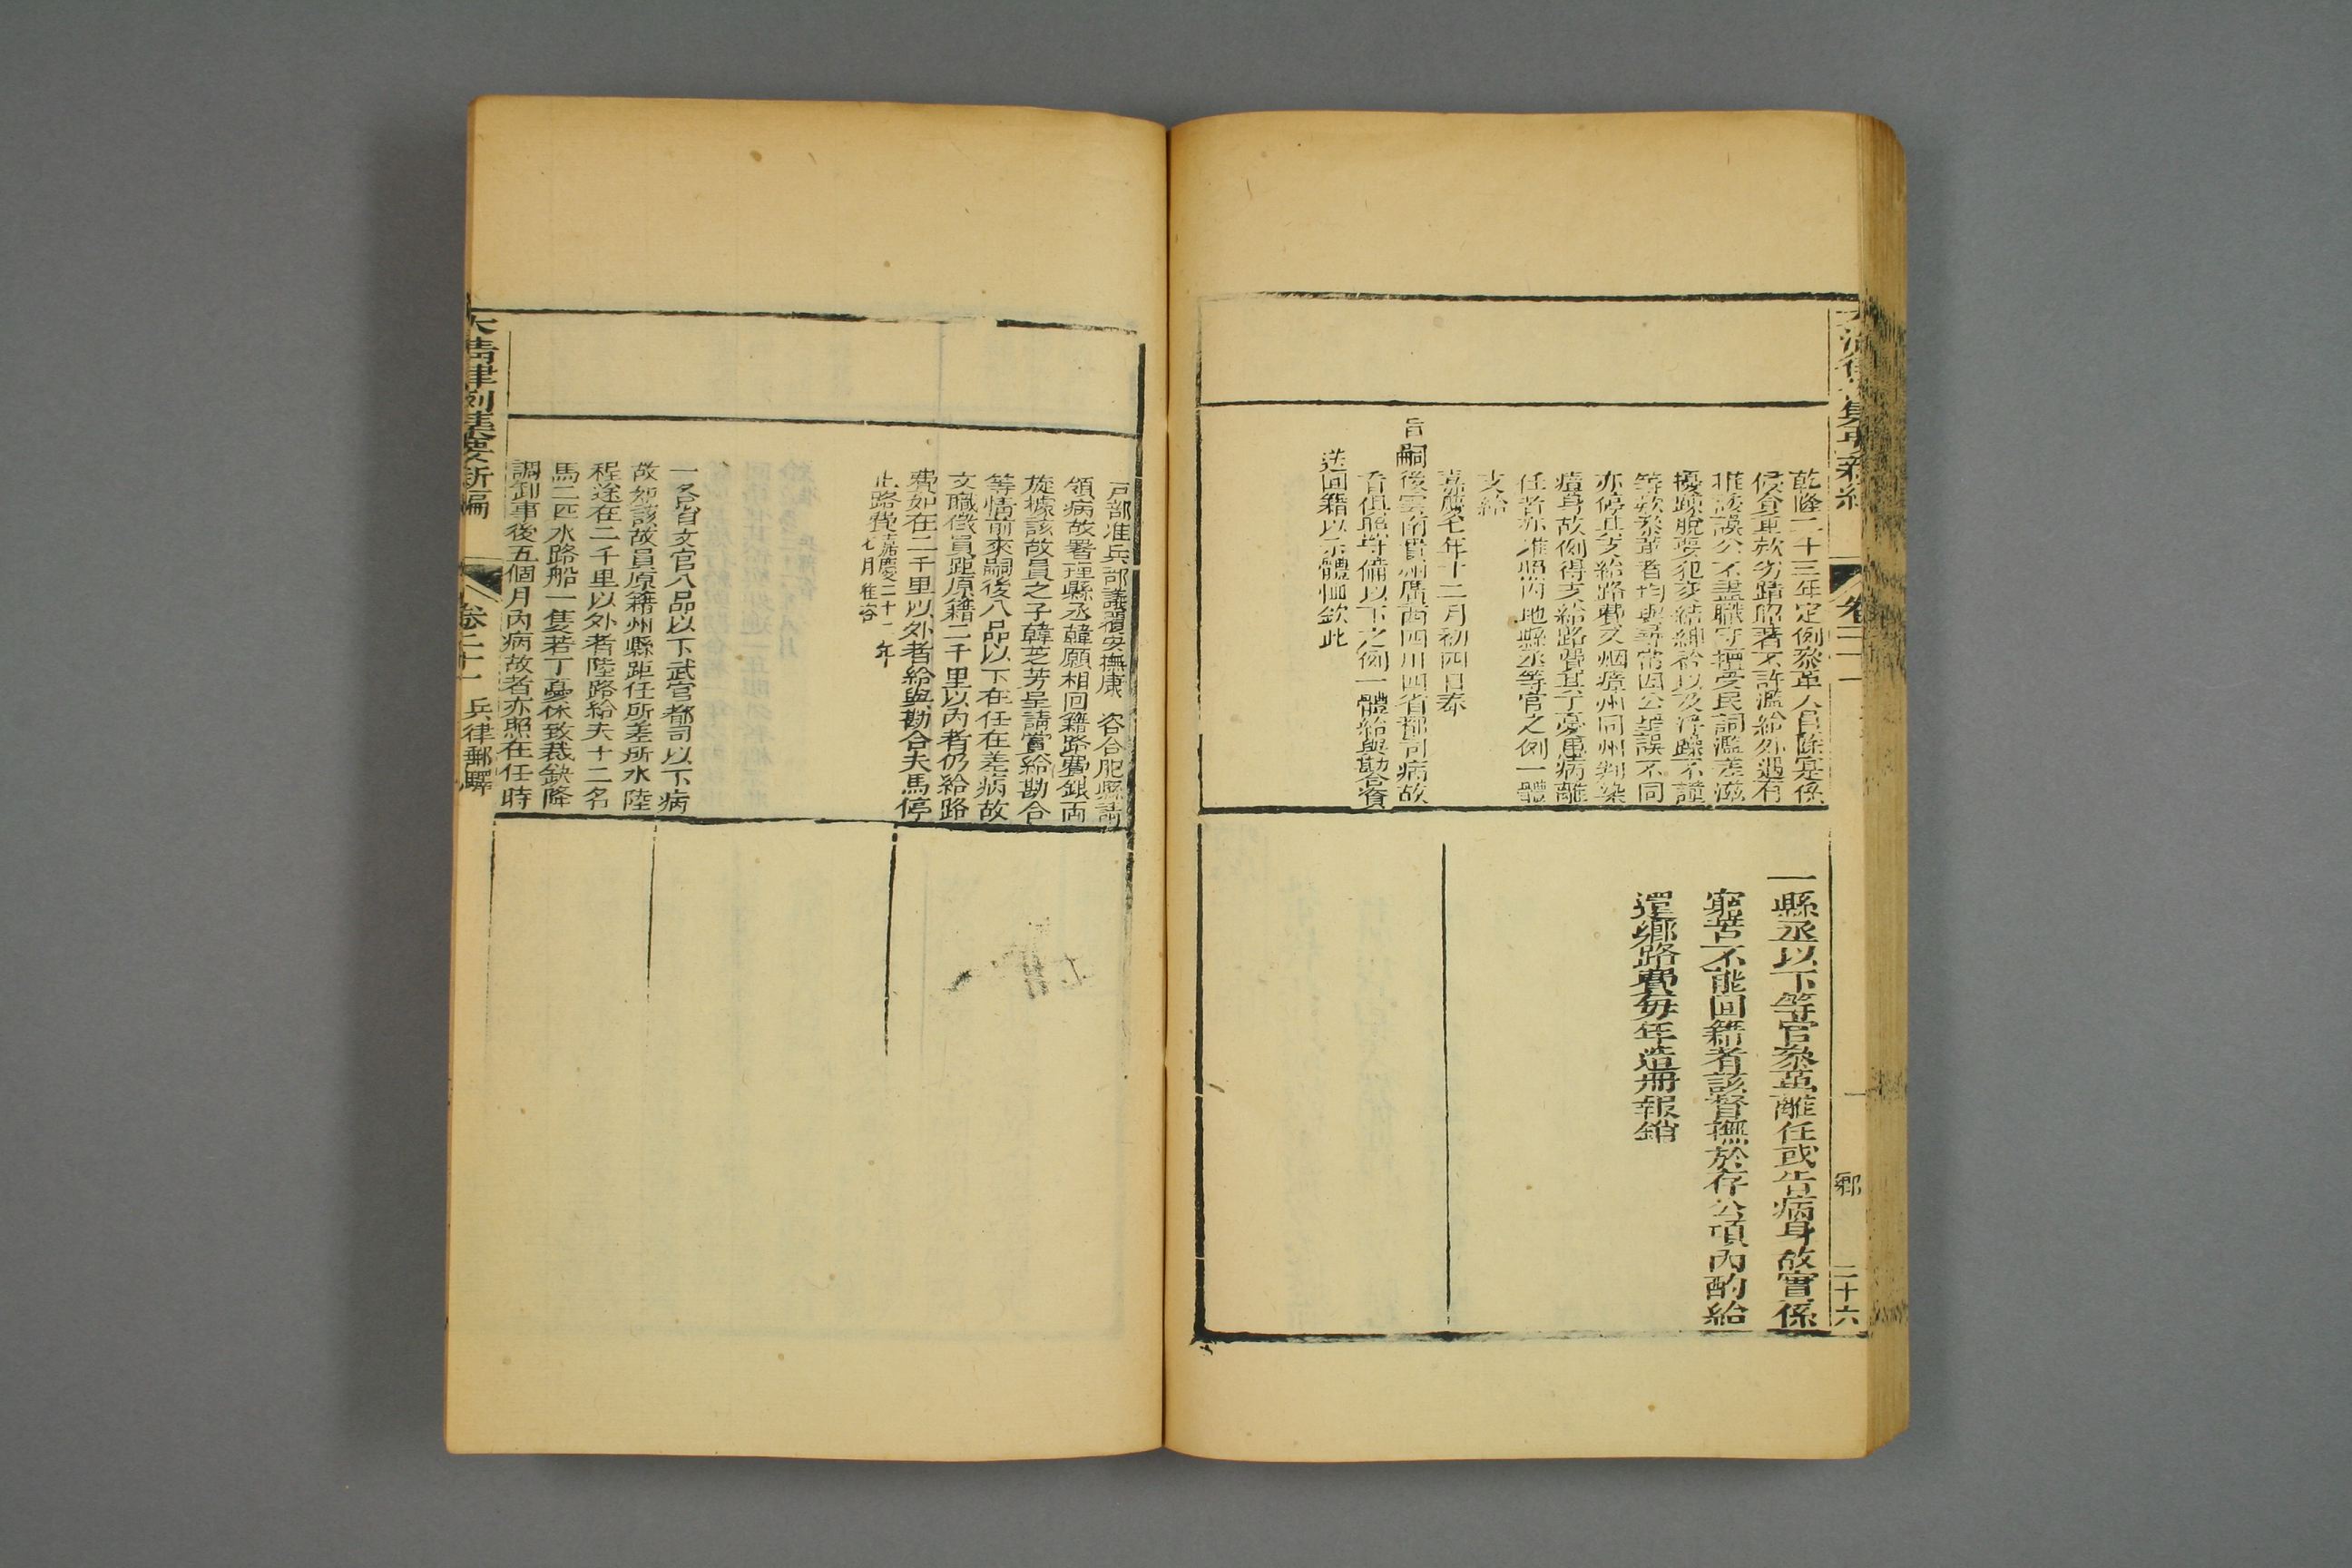 大清律例彙輯新編
卷二十一
郵
二十六
乾隆二十三年定例參革人員除寔係
侵貪重款劣蹟昭著不許濫給外遇有
推諉誤公不盡職守擅受民詞濫差滋
擾疎脫要犯交結紳衿以及浮躁不謹
等款叅革者均與尋常因公罣誤不同
亦停其支給路費又烟瘴州同州判染
瘴身故例得支給路費其丁憂患病離
任者亦准照內地縣丞等官之例一體
支給
嘉慶七年十二月初四日奉
旨嗣後雲南貴州廣西四川四省都司病故
者俱照守備以下之例一體給與勘合資
送回籍以示體恤欽此
一縣丞以下等官叅革離任或告病身故實係
窮苦不能回籍者該督撫於存公項內酌給
還鄉路費每年造冊報銷
戶部准兵部議覆安撫康 咨合肥縣請
領病故署理縣丞韓願相回籍路費銀両
旋據該故員之子韓芝芳呈請賞給勘合
等情前來嗣後八品以下在任在差病故
文職微員距原籍二千里以內者仍給路
費如在二千里以外者給與勘合夫馬停
止路費嘉慶二十一年七月准咨
一各省文官八品以下武官都司以下病
故如該故員原籍州縣距任所差所水陸
程途在二千里以外者陸路給夫十二名
馬二匹水路船一隻若丁憂休致裁缺降
調卸事後五個月內病故者亦照在任時
大清律例彙纂新編
卷二十一 兵律郵驛